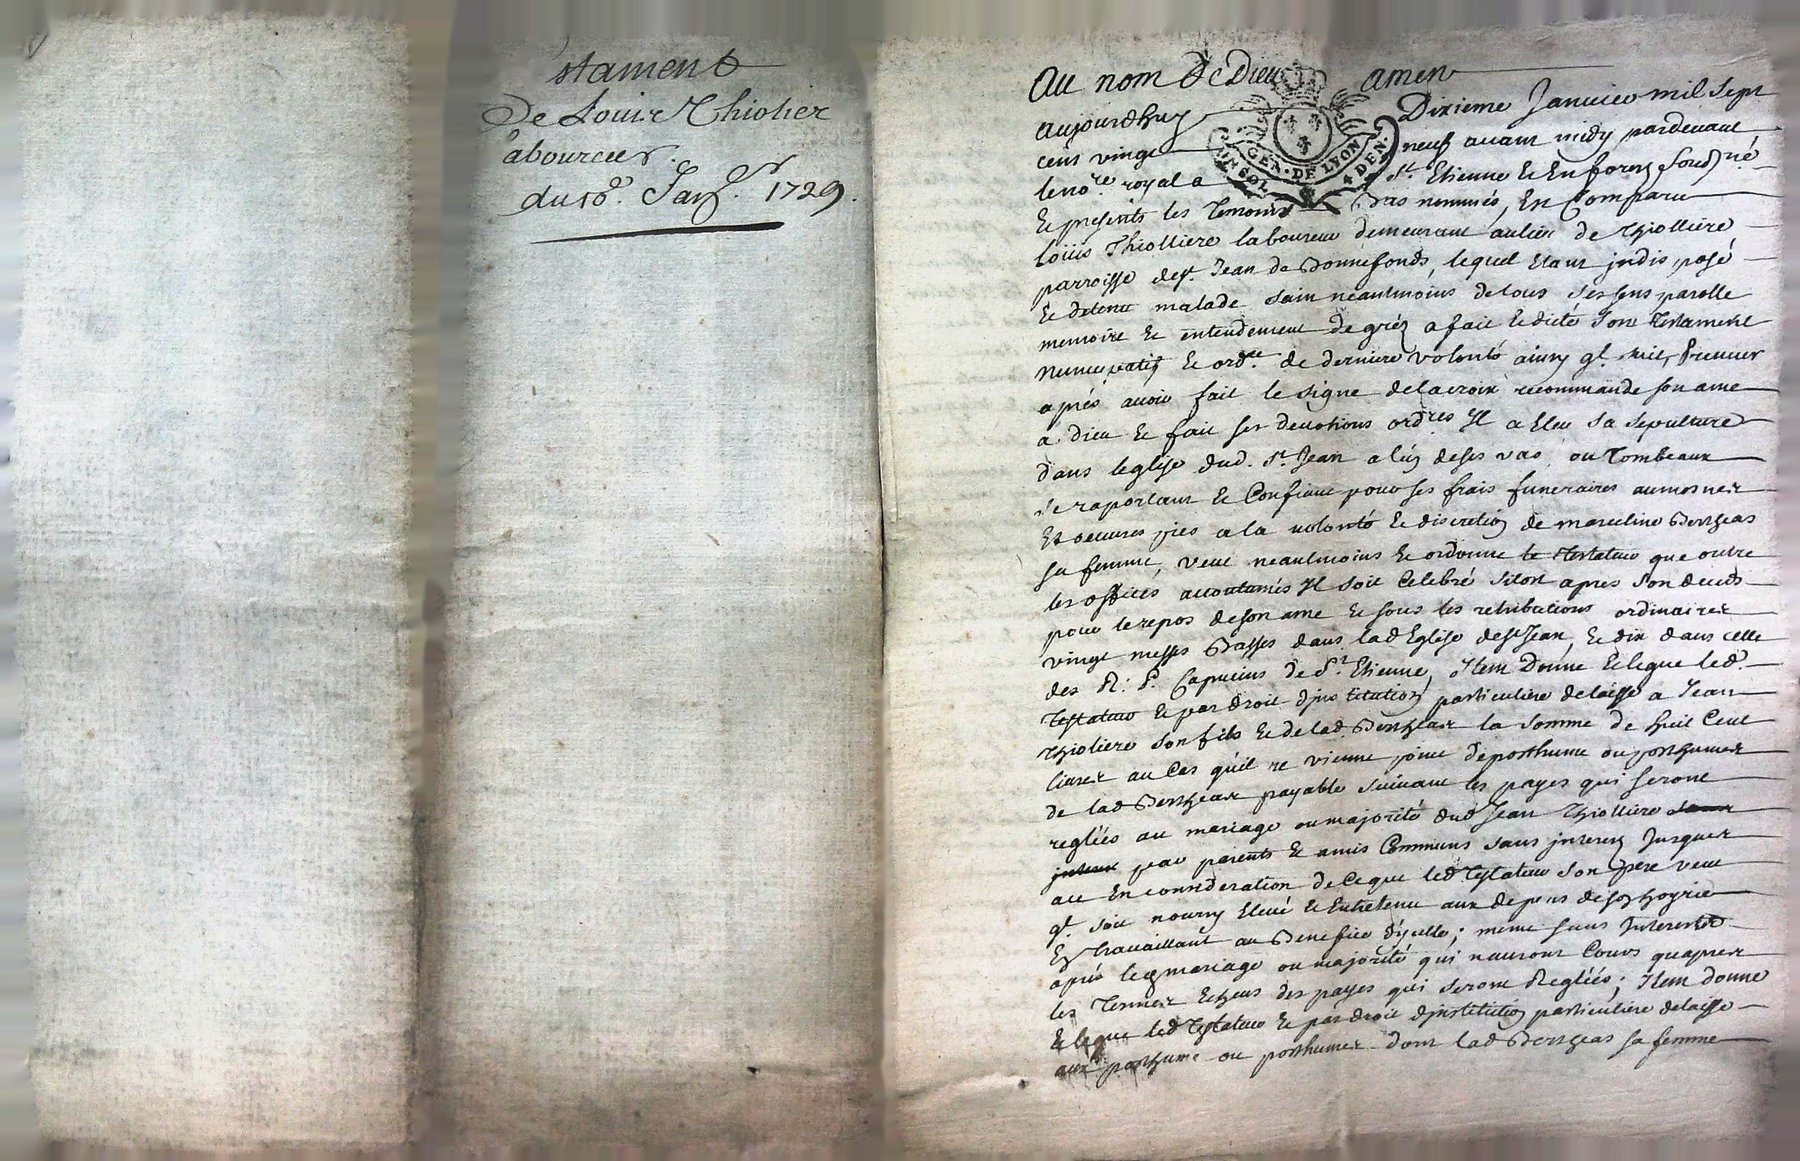 stament
De Louis Thiolier
laboureur.
du 10e. Janv.er 1729.
Au nom de Dieu amen
aujourdhuy Dixieme Janvier mil sept
cens vingt neuf avant midy pardevant
le no.re royal a St. Etienne En forez sousné
Et presents les Temoins Bas nommés, En Comparu
loüis Thiolliere laboureur demeurant au lieu de Thiolliere
parroisse de St. Jean de Bonnefonds, lequel Etant jndisposé
Et detenu malade sain neantmoins de tous ses sens parolle
memoire Et entendement de gréz a fait Et dicté son Testament
nuncupatif Et ord.re de derniere volonté ainsy ql. suit, premier
aprés avoir fait le signe de la croix recommandé son ame
a Dieu Et fait ses devotions ord.res Jl a Eleu sa sepulture
dans leglise dud. St. Jean a luy de ses vas ou Tombeaux
se raportant Et Confiant pour ses frais funeraires aumosnes
Et oeuvres pies a la volonté Et discretion de marceline Bertheas
sa femme, veut neantmoins Et ordonne le Testateur que outre
les offices accoutumés Jl soit Celebré sitost apres son deces
pour le repos de son ame Et sous les retributions ordinaires
vingt messes Basses dans lad Eglise de St Jean, Et dix dans celle
des R. P. Capucins de St. Etienne, Jtem Donne Et legue led.
Testateur Et par droit djnstitution particuliere delaisse a Jean
Thioliere son fils Et de lad. Bertheas la somme de huit Cent
livres au Cas qu'il ne vienne point de posthume ou posthumes
de lad Bertheas payable suivant les payes qui seront
reglées au mariage ou majorité dud Jean Thiolliere sans
jnterest par parents Et amis Communs sans jnterest Jusques
au En consideration de Ce que led Testateur son pere veut
ql. soit nourry Elevé Et Entretenu aux depens de son hoyrie
En Travaillant au Benefice d'jcelle; même sans Jnterest
aprés led mariage ou majorité qui nauront Cours quapres
les Termes Echeus des payes qui seront Reglées; Jtem donne
Et legue led Testateur Et par droit djnstitution particuliere delaisse
aux posthume ou posthumes dont lad Bertheas sa femme
GEN. DE LYON
SOL
4 DEN.